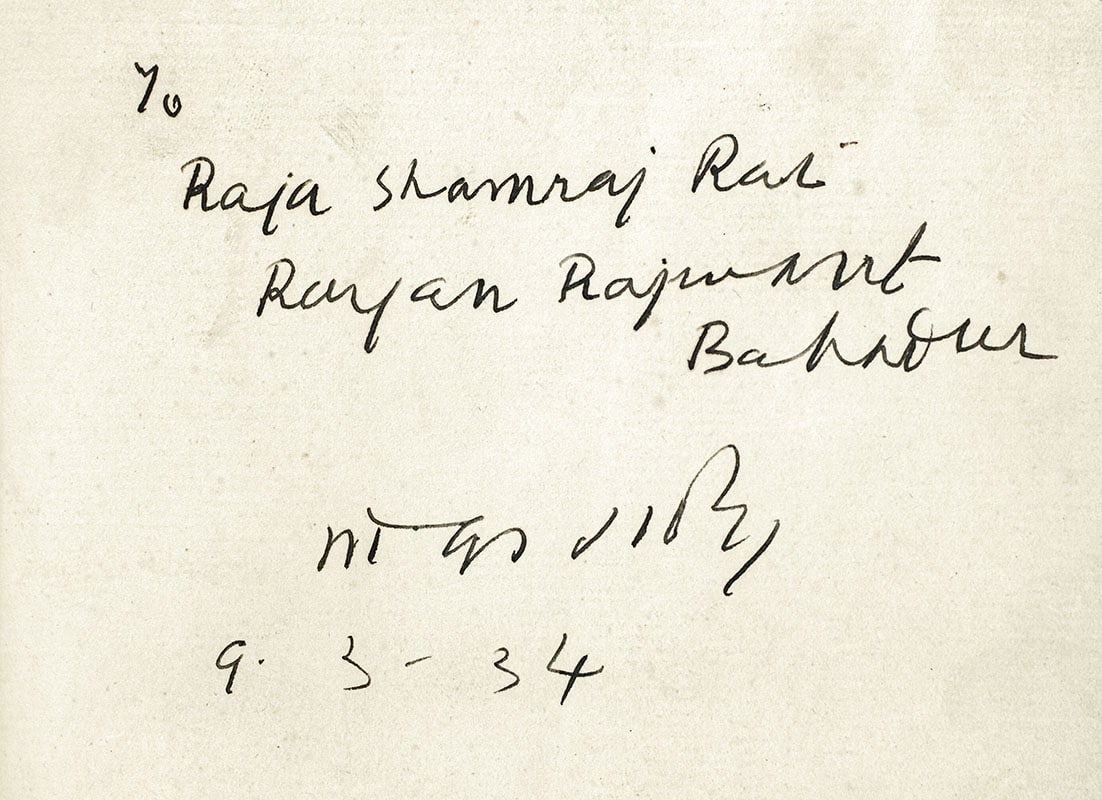 To
Raja Shamraj Rai
Rayan Rajwant
Bahadur
9. 3 - 34